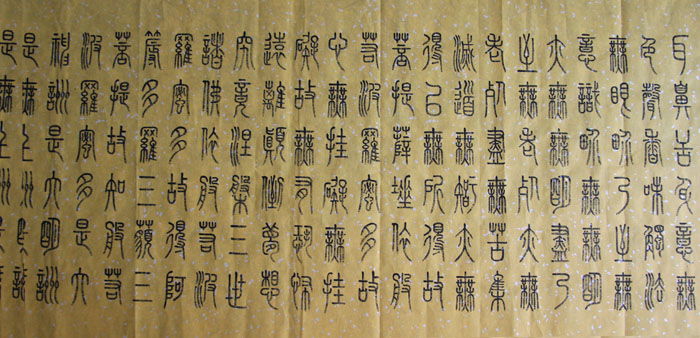 耳鼻舌身意無
色聲香味觸法
無眼界乃至無
意識界無無明
亦無無明盡乃
至無老死亦無
老死盡無苦集
滅道無智亦無
得以無所得故
菩提薩埵依般
若波羅蜜多故
心無挂礙無挂
礙故無有恐怖
遠離顛倒夢想
究竟涅槃三世
諸佛依般若波
羅蜜多故得阿
多羅三藐三
菩提故知般若
波羅蜜多是大
神詶是大明詶
是無上
是無